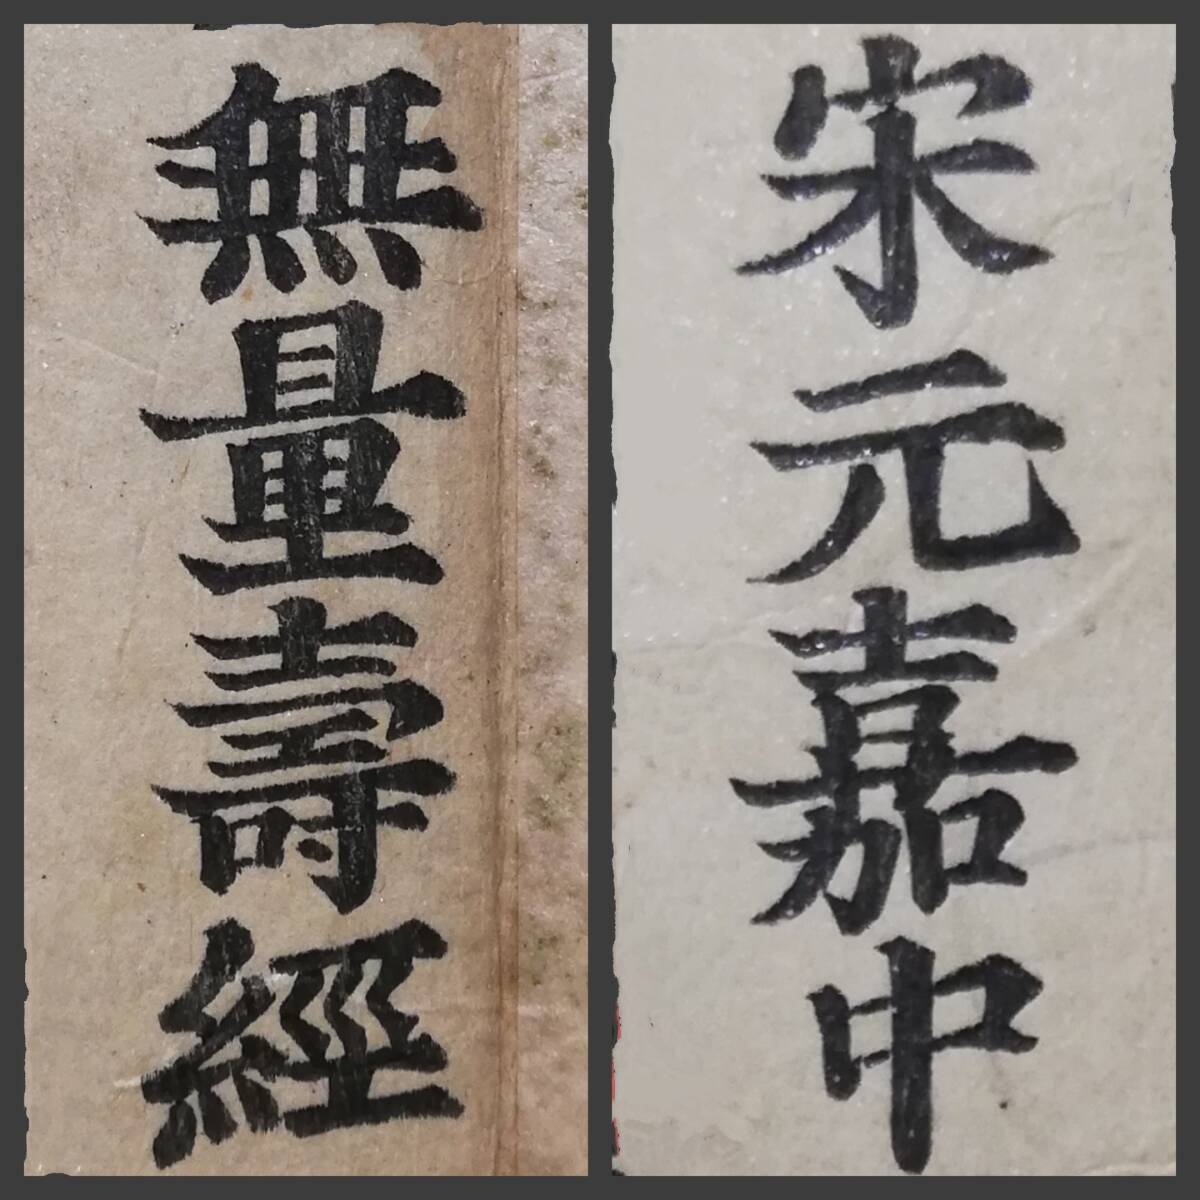 無量壽經
宋元嘉中